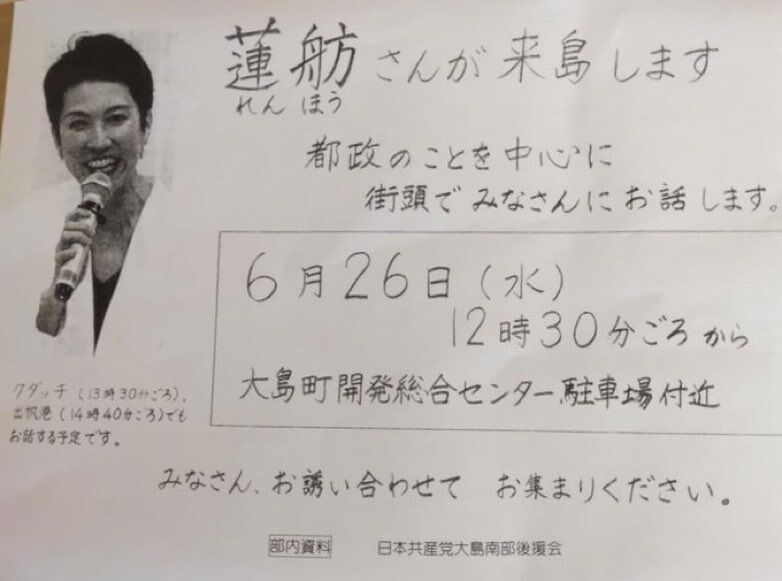 蓮舫さんが来島します
れんほう
都政のことを中心に
街頭でみなさんにお話します。
6月26日(水)
12時30分ごろから
大島町開発総合センター駐車場付近
クダッチ(13時30分ごろ)、
出帆港(14時40分ごろ)でも
お話する予定です。
みなさん、お誘い合わせて お集まりください。
部内資料 日本共産党大島南部後援会